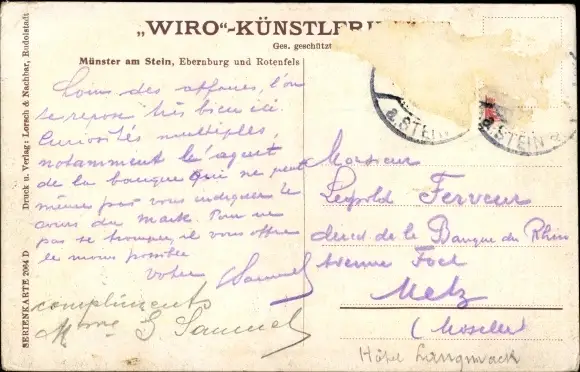 „WIRO“-KÜNSTLER
Ges. geschützt
Münster am Stein, Ebernburg und Rotenfels
Loin des affaires, l'on
se repose très bien ici.
Curiosités multiples,
notamment l'agent
de la banque qui ne peut
même pas vous indiquer le
cours du mark. Pour ne
pas se tromper, il vous offre
le moins possible
Votre Samuel
compliments
Mme G Samuel
a. STEIN
a. STEIN
Monsieur
Léopold Ferveur
de la Banque du Rhin
Avenue Foch
Metz
(Moselle)
Hôtel Langmack
SERIENKARTE 2064 D
Druck u. Verlag: Lorsch & Nachbar, Rudolstadt